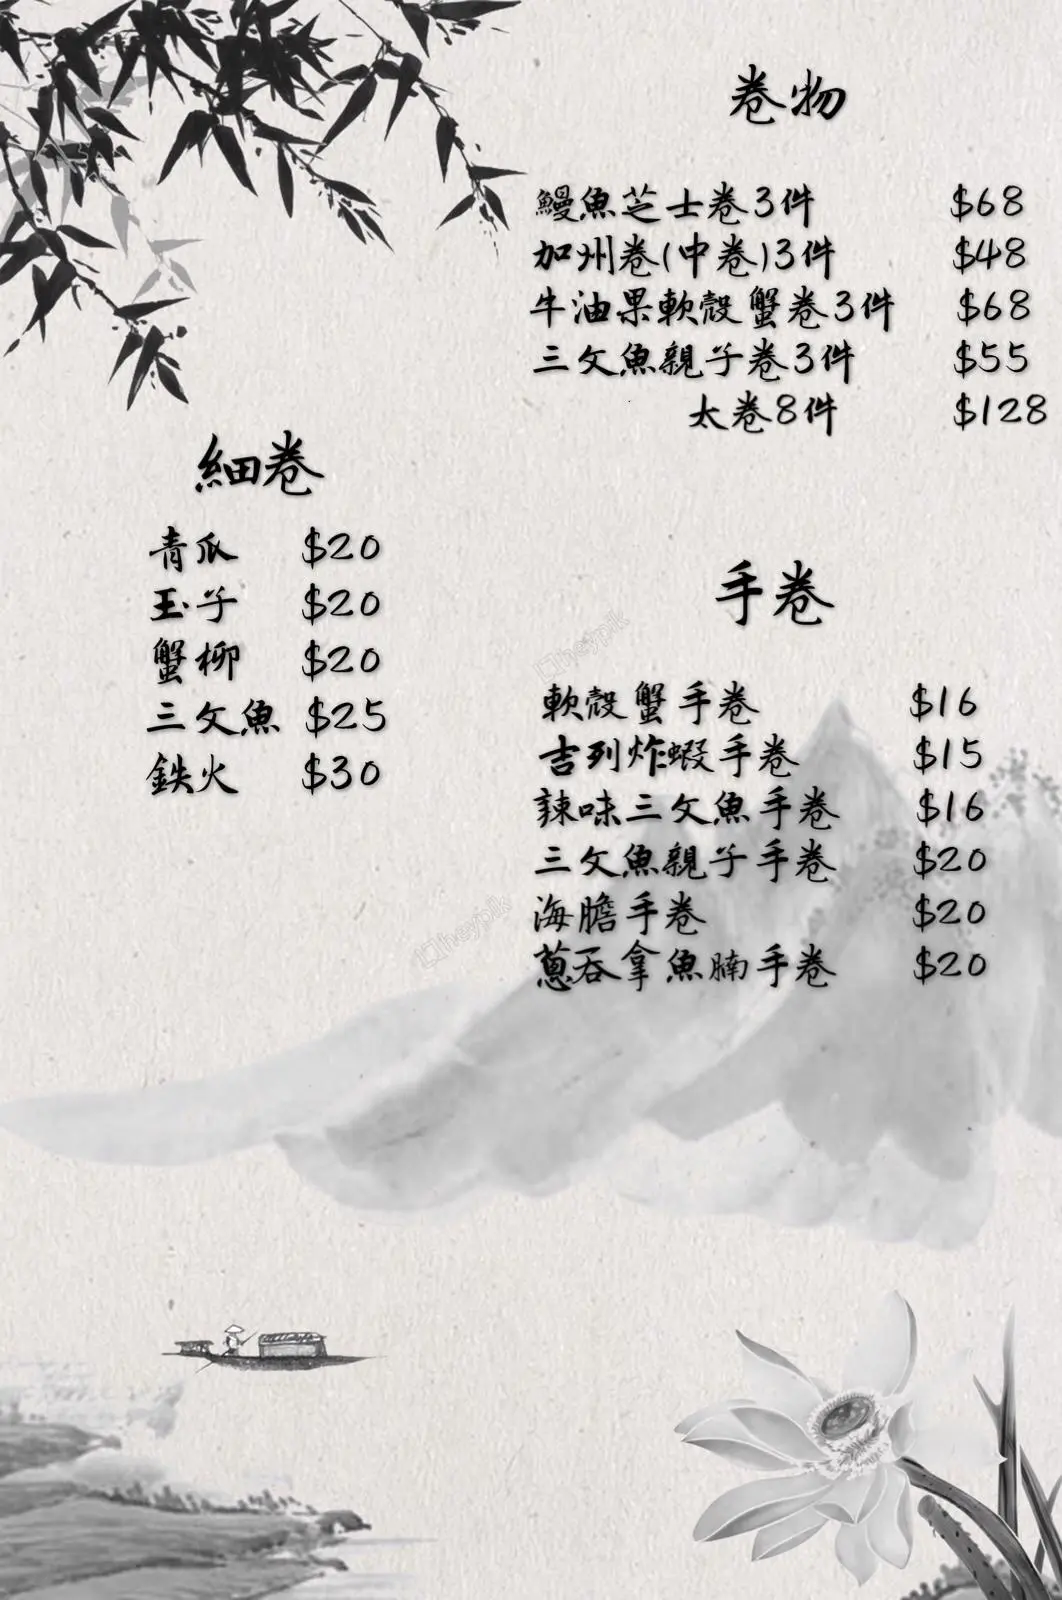 卷物
鰻魚芝士卷3件 $68
加州卷(中卷)3件 $48
牛油果軟殼蟹卷3件 $68
三文魚親子卷3件 $55
太卷8件 $128
細卷
青瓜 $20
玉子 $20
蟹柳 $20
三文魚 $25
鉄火 $30
手卷
軟殼蟹手卷 $16
吉列炸蝦手卷 $15
辣味三文魚手卷 $16
三文魚親子手卷 $20
海膽手卷 $20
蔥吞拿魚腩手卷 $20